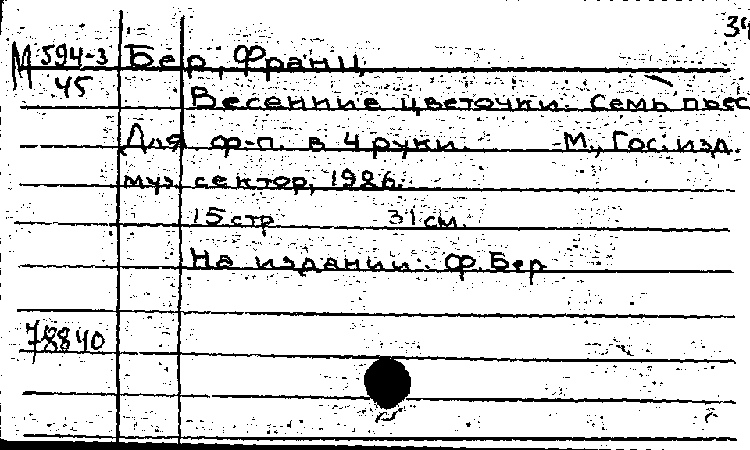 34
М 594-3 Бер, Франц
45 Весенние цветочки. Семь пьес
Для ф-п. в 4 руки. М., Гос. изд.
муз. сектор, 1926.
15 стр 31 см.
На издании: Ф. Бер
78840